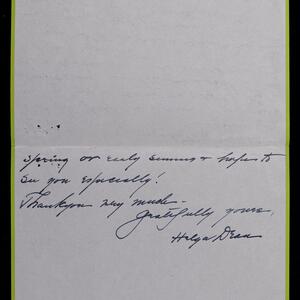 spring or early summer & hope to
see you especially!
Thankyou very much –
Gratefully yours,
Helga Dean